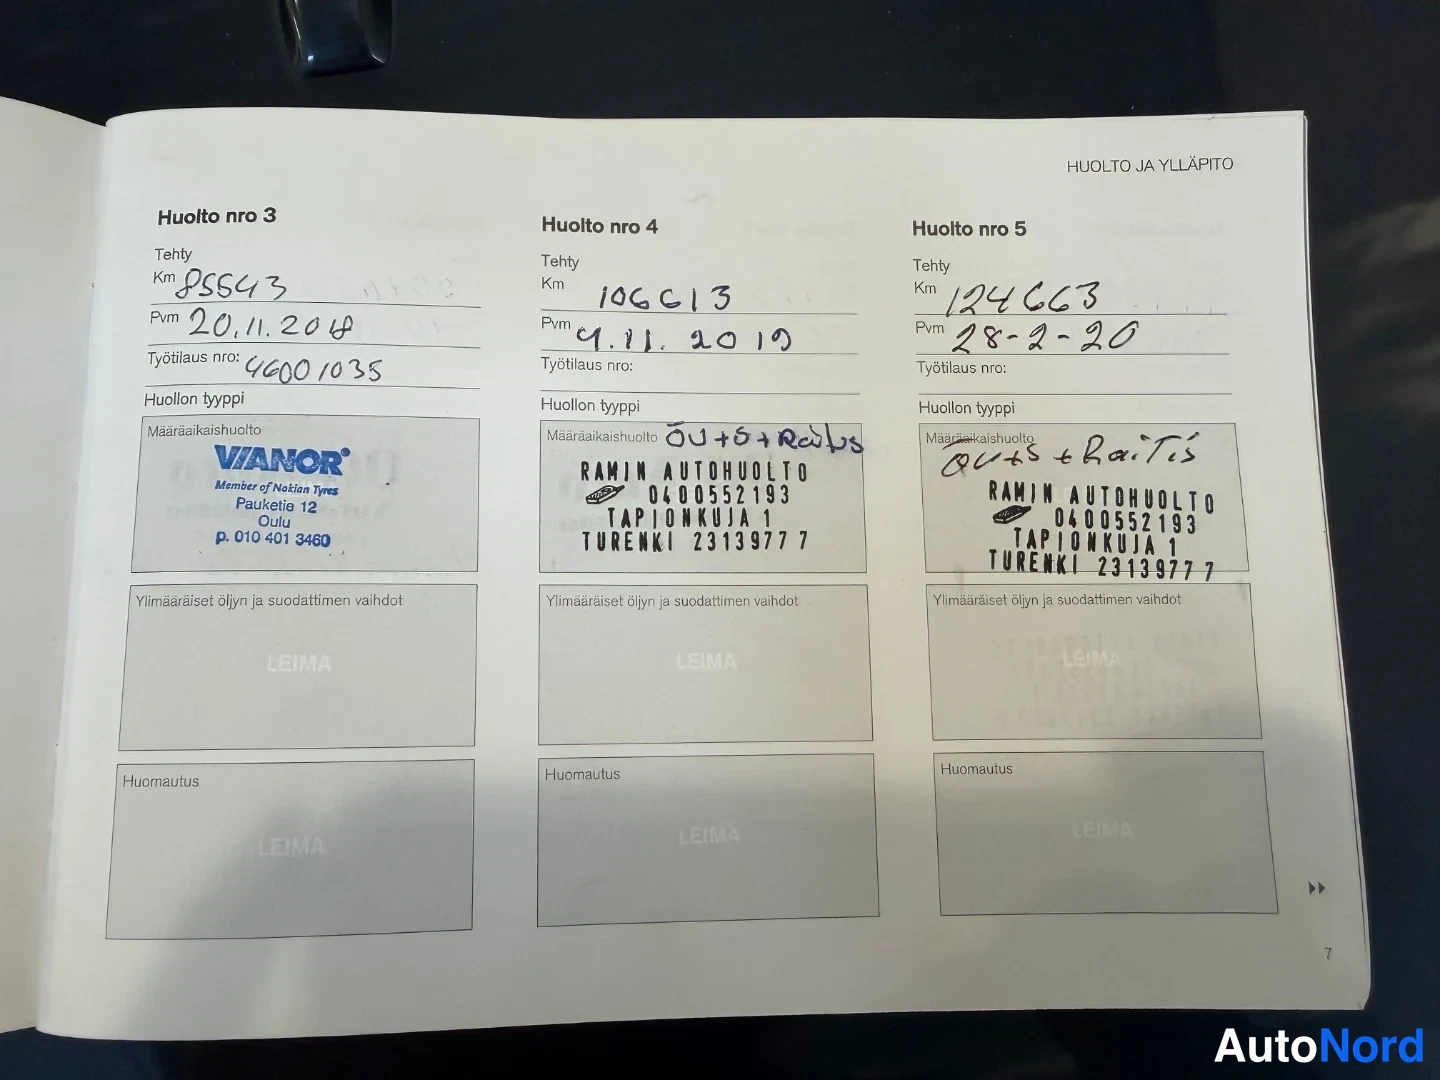 HUOLTO JA YLLÄPITO
Huolto nro 3
Tehty
Km 85543
Pvm 20.11.2018
Työtilaus nro: 46001035
Huollon tyyppi
Määräaikaishuolto
VIANOR
Member of Nokian Tyres
Pauketie 12
Oulu
p. 010 401 3460
Ylimääräiset öljyn ja suodattimen vaihdot
LEIMA
Huomautus
LEIMA
Huolto nro 4
Tehty
Km 106613
Pvm 9.11.2019
Työtilaus nro:
Huollon tyyppi
Määräaikaishuolto ÖV+S+Raitis
RAMIN AUTOHUOLTO
0400552193
TAPIONKUJA 1
TURENKI 2313977 7
Ylimääräiset öljyn ja suodattimen vaihdot
LEIMA
Huomautus
LEIMA
Huolto nro 5
Tehty
Km 124663
Pvm 28-2-20
Työtilaus nro:
Huollon tyyppi
Määräaikaishuolto
ÖV+S+RaiTis
RAMIN AUTOHUOLTO
0400552193
TAPIONKUJA 1
TURENKI 2313977 7
Ylimääräiset öljyn ja suodattimen vaihdot
LEIMA
Huomautus
LEIMA
7
AutoNord